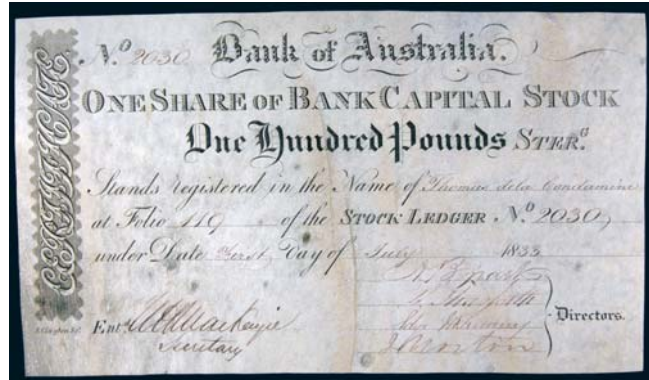 CERTIFICATE
N.º 2030 Bank of Australia.
ONE SHARE OF BANK CAPITAL STOCK
One Hundred Pounds STER.G
Stands registered in the Name of Thomas dela Condamine
at Folio 119 of the STOCK LEDGER N.º 2030
under Date First Day of July 1833
Ent.d Mackenzie
Secretary
Directors.